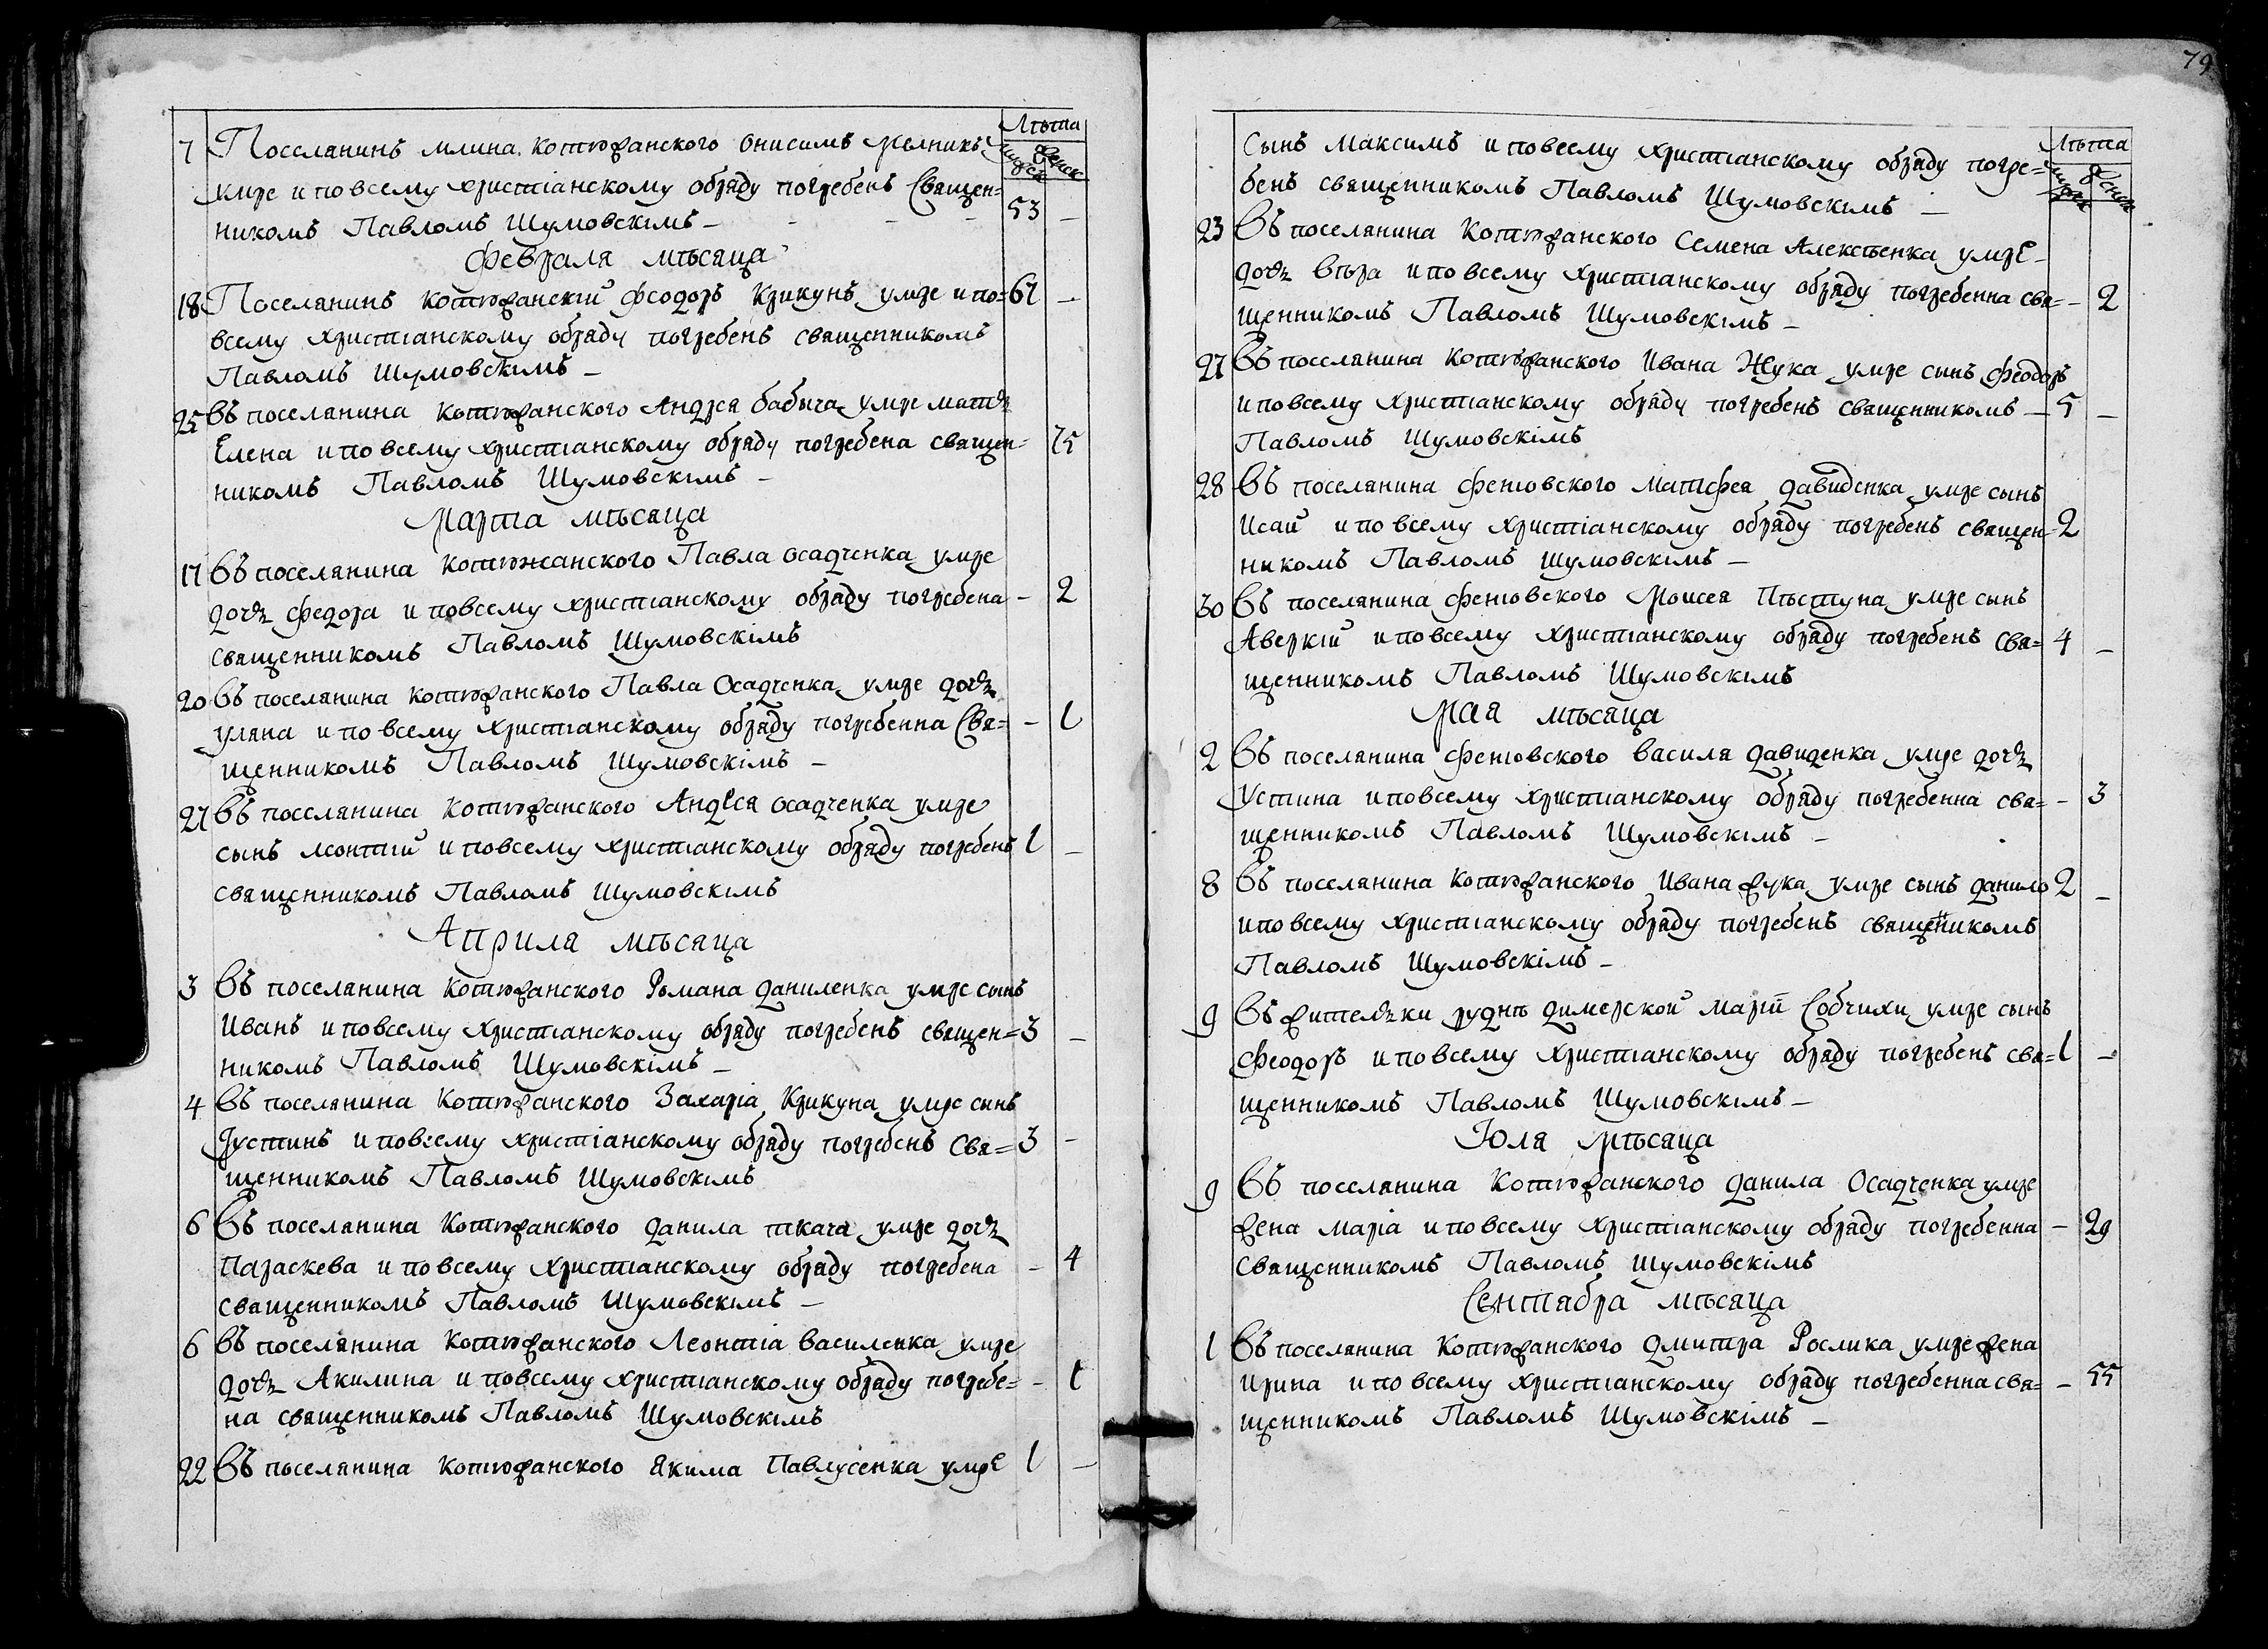 Лѣта
мужск женск
7 Поселянинъ млина котюжанского Онисимъ Мелникъ
умре и по всему христіанскому обряду погребенъ Священ=
никомъ Павломъ Шумовскімъ – 53 –
Февраля мѣсяца
18 Поселянинъ котюжанскій Феодоръ Крикунъ умре и по= 61 –
всему христіанскому обряду погребенъ священникомъ
Павломъ Шумовскімъ –
25 Въ поселянина котюжанского Андрея бабыча умре мать
Елена и по всему христіанскому обряду погребена священ= 75
никомъ Павломъ Шумовскімъ –
Марта мѣсяца
17 Въ поселянина котюжанского Павла осадченка умре
дочь Федора и по всему христіанскому обряду погребена – 2
священникомъ Павломъ Шумовскімъ
20 Въ поселянина котюжанского Павла Осадченка умре дочь
уляна и по всему христіанскому обряду погребенна Свя= – 1
щенникомъ Павломъ Шумовскімъ –
27 Въ поселянина котюжанского Андрея осадченка умре
сынъ леонтій и по всему христіанскому обряду погребенъ 1 –
священникомъ Павломъ Шумовскімъ
Априля мѣсяца
3 Въ поселянина котюжанского Романа даниленка умре сынъ
Иванъ и по всему христіанскому обряду погребенъ священ= 3 –
никомъ Павломъ Шумовскімъ –
4 Въ поселянина Котюжанского Захаріа Крикуна умре сынъ
Іустинъ и по всему христіанскому обряду погребенъ Свя= 3 –
щенникомъ Павломъ Шумовскімъ
6 Въ поселянина Котюжанского данила ткача умре дочь
Параскева и по всему христіанскому обряду погребена – 4
священникомъ Павломъ Шумовскімъ –
6 Въ поселянина Котюжанского Леонтіа василенка умре
дочь Акилина и по всему христіанскому обряду погребе= – 1
на священникомъ Павломъ Шумовскімъ
22 Въ поселянина Котюжанского Якима Павлусенка умре 1 –
79
Лѣта
мужск женск
сынъ Максимъ и по всему христіанскому обряду погре=
бенъ священникомъ Павломъ Шумовскімъ –
23 Въ поселянина Котюжанского Семена Алексѣенка умре
дочь вѣра и по всему христіанскому обряду погребенна свя= – 2
щенникомъ Павломъ Шумовскімъ –
27 Въ поселянина котюжанского Ивана Жука умре сынъ Феодоръ
и по всему христіанскому обряду погребенъ священникомъ – 5 –
Павломъ Шумовскімъ
28 Въ поселянина Фенювского Матфея давиденка умре сынъ
Исаій и по всему христіанскому обряду погребенъ священ= 2
никомъ Павломъ Шумовскімъ –
30 Въ поселянина Фенювского Моисея Пѣстуна умре сынъ
Аверкій и по всему христіанскому обряду погребенъ свя= 4 –
щенникомъ Павломъ Шумовскімъ
Мая мѣсяца
2 Въ поселянина Фенювского василя давиденка умре дочь
Устина и по всему христіанскому обряду погребенна свя= – 3
щенникомъ Павломъ Шумовскімъ –
8 Въ поселянина Котюжанского Ивана жука умре сынъ данило 2 –
и по всему христіанскому обряду погребенъ священникомъ
Павломъ Шумовскімъ –
9 Въ жителки руднѣ димерской Маріи Собчихи умре сынъ
Феодоръ и по всему христіанскому обряду погребенъ свя= 1 –
щенникомъ Павломъ Шумовскімъ –
Юля мѣсяца
9 Въ поселянина Котюжанского данила Осадченка умре
жена Маріа и по всему христіанскому обряду погребенна – 29
священникомъ Павломъ Шумовскімъ
Сентября мѣсяца
1 Въ поселянина Котюжанского дмитра Рослика умре жена
Ирина и по всему христіанскому обряду погребенна свя= – 55
щенникомъ Павломъ Шумовскімъ –